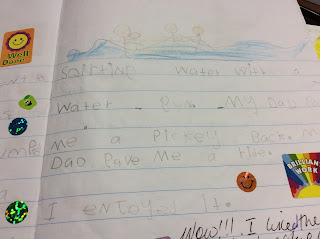 Well Done
Sqirting Water with a
Water Gun. My Dad ga
Me a Pickey Back. M
Dad Gave Me a Ride.
I enjoyed It.
BRILLIANT WORK
Wow!!! I like the